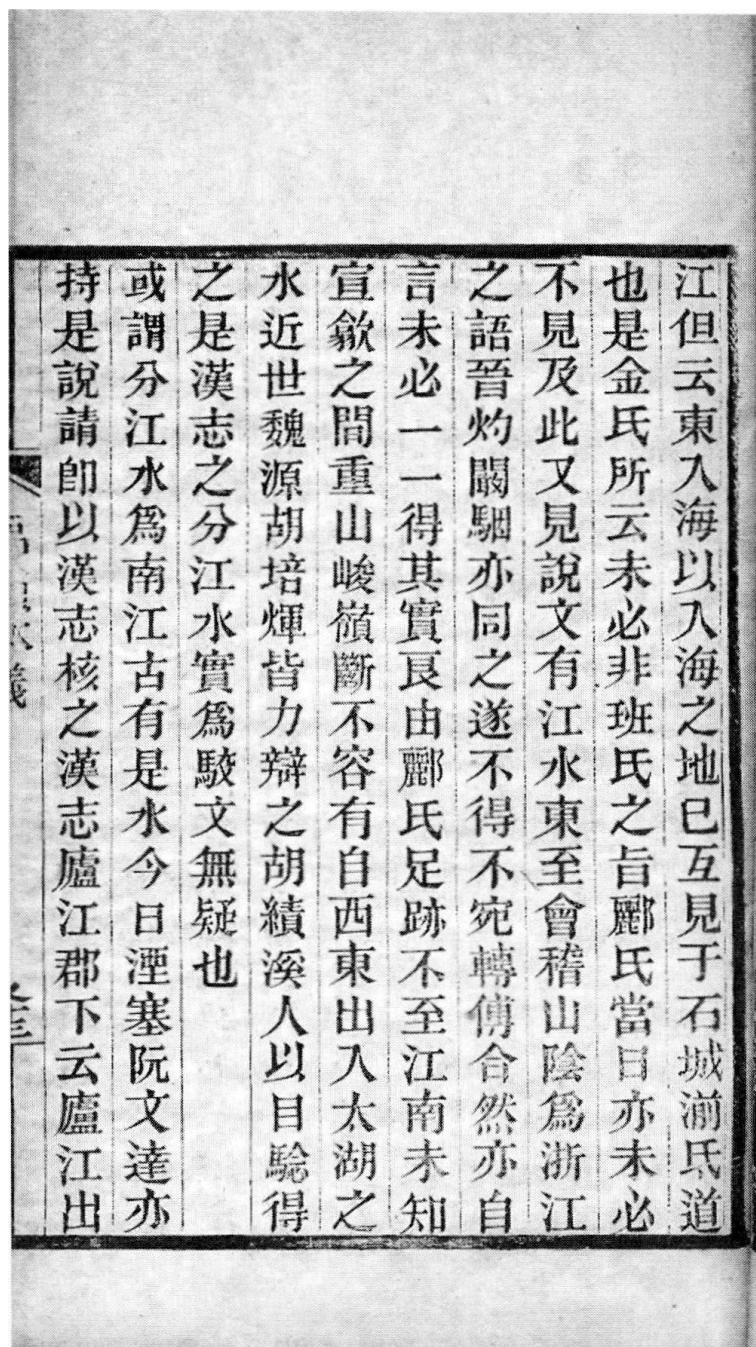 江但云東入海以入海之地已互見于石城湔氐道
也是金氏所云未必非班氏之旨酈氏當日亦未必
不見及此又見說文有江水東至會稽山陰爲浙江
之語晉灼闞駰亦同之遂不得不宛轉傅合然亦自
言未必一一得其實良由酈氏足跡不至江南未知
宣歙之間重山峻嶺斷不容有自西東出入太湖之
水近世魏源胡培煇皆力辯之胡績溪人以目騐得
之是漢志之分江水實爲駮文無疑也
或謂分江水爲南江古有是水今日湮塞阮文達亦
持是說請卽以漢志核之漢志廬江郡下云廬江出